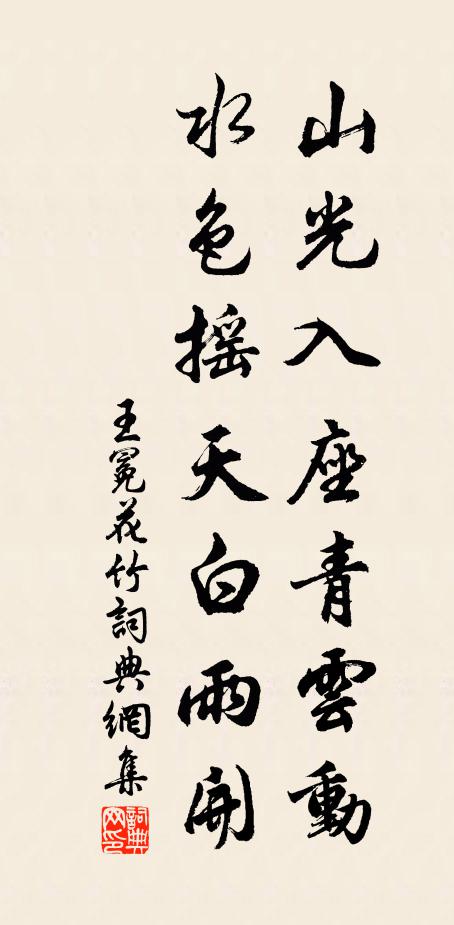 山光入座青雲動
水色摇天白雨開
王冕花竹詞典網集
詞典
网印